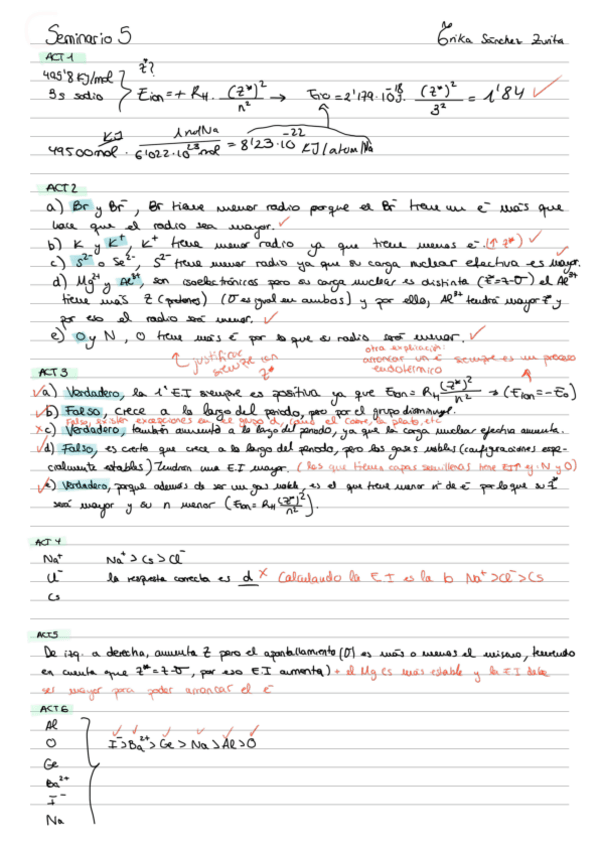 Seminario 5
Erika Sánchez Zurita
ACT 1
495'8 KJ/mol
3s sodio
Z*?
Eion = + RH · (Z*)²/n² → Eio = 2'179·10⁻¹⁸ J · (Z*)²/3² = 1'84 ✓
49500 KJ/mol · 1 mol Na/6'022·10²³ mol = 8'23·10⁻²² KJ/atom Na
ACT 2
a) Br y Br⁻, Br tiene menor radio porque el Br⁻ tiene un e⁻ más que
hace que el radio sea mayor. ✓
b) K y K⁺, K⁺ tiene menor radio ya que tiene menos e⁻. (↑ Z*) ✓
c) S²⁻ o Se²⁻, S²⁻ tiene menor radio ya que su carga nuclear efectiva es mayor.
d) Mg²⁺ y Al³⁺, son isoelectrónicos pero su carga nuclear es distinta (Z*=Z-σ) el Al³⁺
tiene más Z (protones) (σ es igual en ambos) y por ello, Al³⁺ tendrá mayor Z* y
por eso el radio será menor. ✓
e) O y N, O tiene más e⁻ por lo que su radio será menor. ✓
justificar
siempre con
Z*
otra explicación:
arrancar un e⁻ siempre es un proceso
endotérmico
ACT 3
✓ a) Verdadero, la 1ª E.I siempre es positiva ya que Eion = RH (Z*)²/n² → (Eion = -Eo)
✓ b) Falso, crece a lo largo del periodo, pero por el grupo disminuye.
Falso, existen excepciones en el grupo d, como el cobre, la plata, etc
× c) Verdadero, también aumenta a lo largo del periodo, ya que la carga nuclear efectiva aumenta.
✓ d) Falso, es cierto que crece a lo largo del periodo, pero los gases nobles (configuraciones espe-
cialmente estables) tendrán una E.I mayor. (los que tienen capas semillenas tiene EI↑ y · N y O)
✓ e) Verdadero, porque además de ser un gas noble, es el que tiene menor nº de e⁻ por lo que su Z*
será mayor y su n menor (Eion = RH (Z*)²/n²).
ACT 4
Na⁺ Na⁺ > Cs > Cl⁻
Cl⁻ la respuesta correcta es d × Calculando la E I es la b Na⁺ > Cl⁻ > Cs
Cs
ACT 5
De izq. a derecha, aumenta Z pero el apantallamiento (σ) es más o menos el mismo, teniendo
en cuenta que Z* = Z-σ, por eso E.I aumenta) + el Mg es más estable y la E I debe
ser mayor para poder arrancar el e⁻
ACT 6
Al
O I⁻ > Ba²⁺ > Ge > Na > Al > O
Ge
Ba²⁺
I⁻
Na